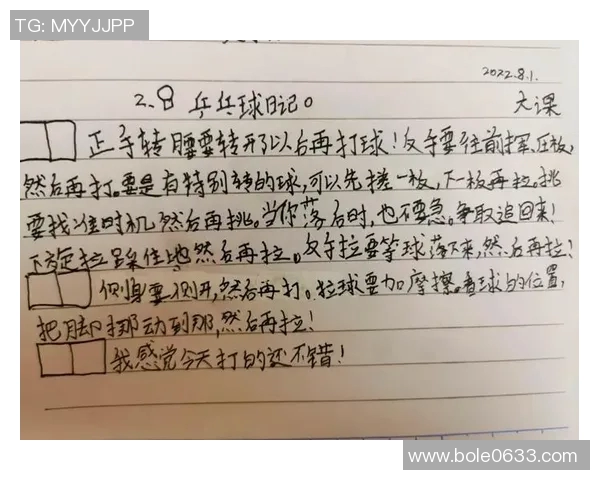 TG: MYYJJPP
2022.8.1.
2.8 乒乓球日记。 大课
正手转腰要转开了以后再打球!反手要往前挥、压板,
然后再打。要是有特别转的球,可以先搓一板,下一板再拉。挑
要找准时机然后再挑。当你落后时,也不要急。争取追回来!
下旋拉踩住地然后再拉。反手拉要等球落下来,然后再拉!
侧身要侧开,然后再打。拉球要加摩擦。看球的位置,
把脚挪动到那,然后再拉!
我感觉今天打的还不错!
www.bole0633.com